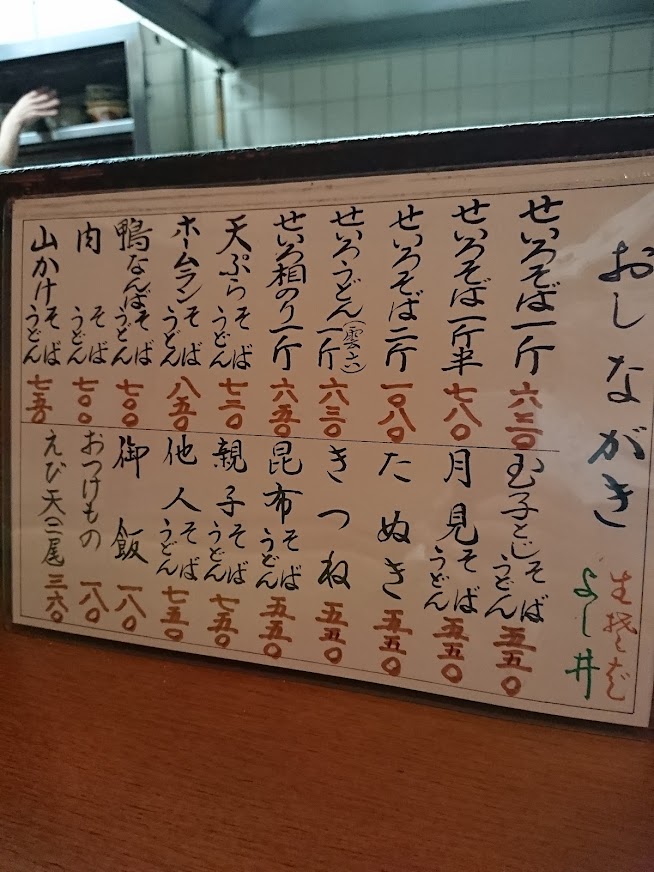 おしながき
生そば
よし井
せいろそば一斤 六三〇
せいろそば一斤半 七八〇
せいろそば二斤 一〇八〇
せいろうどん一斤 六三〇
せいろ相のり一斤 六五〇
天ぷら そば うどん 七二〇
ホームラン そば うどん 八五〇
鴨なんば そば うどん 七〇〇
肉 そば うどん 七〇〇
山かけ そば うどん 七五〇
玉子とじ そば うどん 五五〇
月見 そば うどん 五五〇
たぬき 五五〇
きつね 五五〇
昆布 そば うどん 五五〇
親子 そば うどん 七五〇
他人 そば うどん 七五〇
御飯 一八〇
おつけもの 一八〇
えび天二尾 三六〇